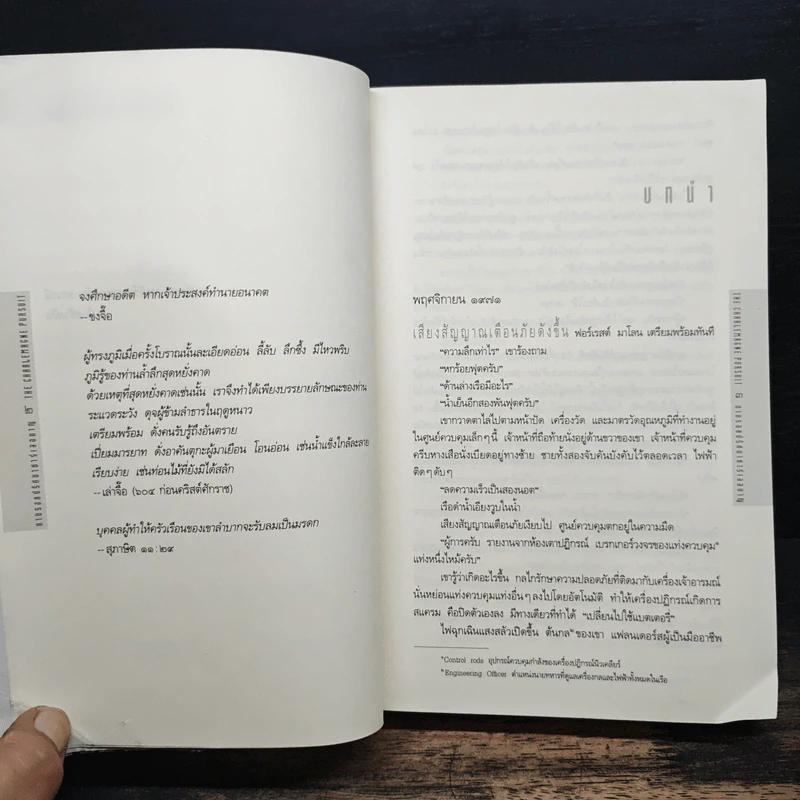 จงศึกษาอดีต หากเจ้าประสงค์ทำนายอนาคต
--ขงจื๊อ
ผู้ทรงภูมิเมื่อครั้งโบราณนั้นละเอียดอ่อน ลี้ลับ ลึกซึ้ง มีไหวพริบ
ภูมิรู้ของท่านล้ำลึกสุดหยั่งคาด
ด้วยเหตุที่สุดหยั่งคาดเช่นนั้น เราจึงทำได้เพียงบรรยายลักษณะของท่าน
ระแวดระวัง ดุจผู้ข้ามลำธารในฤดูหนาว
เตรียมพร้อม ดั่งคนรับรู้ถึงอันตราย
เปี่ยมมารยาท ดั่งอาคันตุกะผู้มาเยือน โอนอ่อน เช่นน้ำแข็งใกล้ละลาย
เรียบง่าย เช่นท่อนไม้ที่ยังมิได้สลัก
--เล่าจื๊อ (๖๐๔ ก่อนคริสต์ศักราช)
บุคคลผู้ทำให้ครัวเรือนของเขาลำบากจะรับลมเป็นมรดก
--สุภาษิต ๑๑:๒๙
THE CHARLEMAGNE PURSUIT
บทนำ
พฤศจิกายน ๑๙๗๑
เสียงสัญญาณเตือนภัยดังขึ้น ฟอร์เรสต์ มาโลน เตรียมพร้อมทันที
“ความลึกเท่าไร” เขาร้องถาม
“หกร้อยฟุตครับ”
“ด้านล่างเรือมีอะไร”
“น้ำเย็นอีกสองพันฟุตครับ”
เขากวาดตาไล่ไปตามหน้าปัด เครื่องวัด และมาตรวัดอุณหภูมิที่ทำงานอยู่
ในศูนย์ควบคุมเล็กๆนี้ เจ้าหน้าที่ถือท้ายนั่งอยู่ด้านขวาของเขา เจ้าหน้าที่ควบคุม
ครีบหางเสือนั่งเบียดอยู่ทางซ้าย ชายทั้งสองจับคันบังคับไว้ตลอดเวลา ไฟฟ้า
ติดๆดับๆ
“ลดความเร็วเป็นสองนอต”
เรือดำน้ำเอียงวูบในน้ำ
เสียงสัญญาณเตือนภัยเงียบไป ศูนย์ควบคุมตกอยู่ในความมืด
“ผู้การครับ รายงานจากห้องเตาปฏิกรณ์ เบรกเกอร์วงจรของแท่งควบคุม*
แท่งหนึ่งไหม้ครับ”
เขารู้ว่าเกิดอะไรขึ้น กลไกรักษาความปลอดภัยที่ติดมากับเครื่องเจ้าอารมณ์
นั่นหย่อนแท่งควบคุมแท่งอื่นๆลงไปโดยอัตโนมัติ ทำให้เครื่องปฏิกรณ์เกิดการ
สแครม คือปิดตัวเองลง มีทางเดียวที่ทำได้ “เปลี่ยนไปใช้แบตเตอรี่”
ไฟฉุกเฉินแสงสลัวเปิดขึ้น ต้นกล*ของเขา แฟลนเดอร์สผู้เป็นมืออาชีพ
Control rods อุปกรณ์ควบคุมกำลังของเครื่องปฏิกรณ์นิวเคลียร์
Engineering Officer ตำแหน่งนายทหารที่ดูแลเครื่องกลและไฟฟ้าทั้งหมดในเรือ
THE CHARLEMAGNE PURSUIT